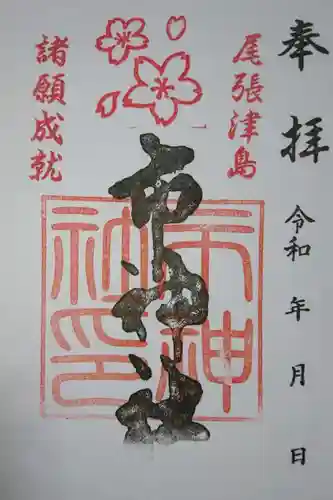 奉拝
令和 年 月 日
尾張津島
市神社
諸願成就
市神社印